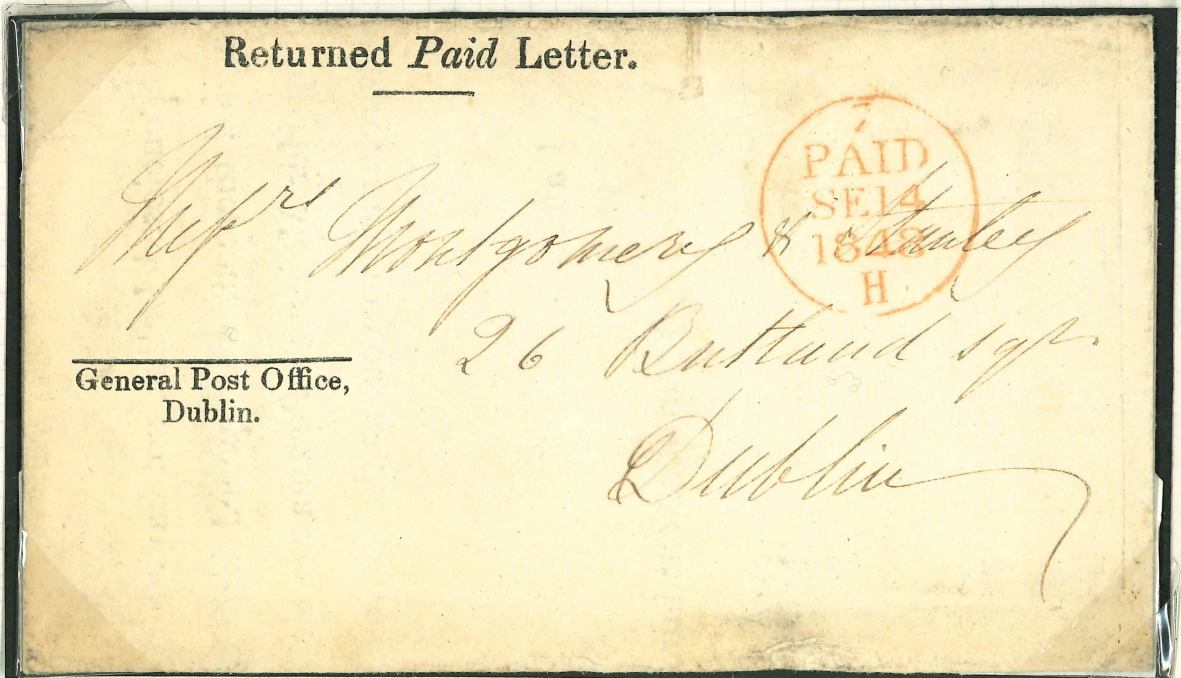 Returned Paid Letter.
7
PAID
SE 14
1848
H
Messrs Montgomery &
26 Rutland sqr.
Dublin
General Post Office,
Dublin.